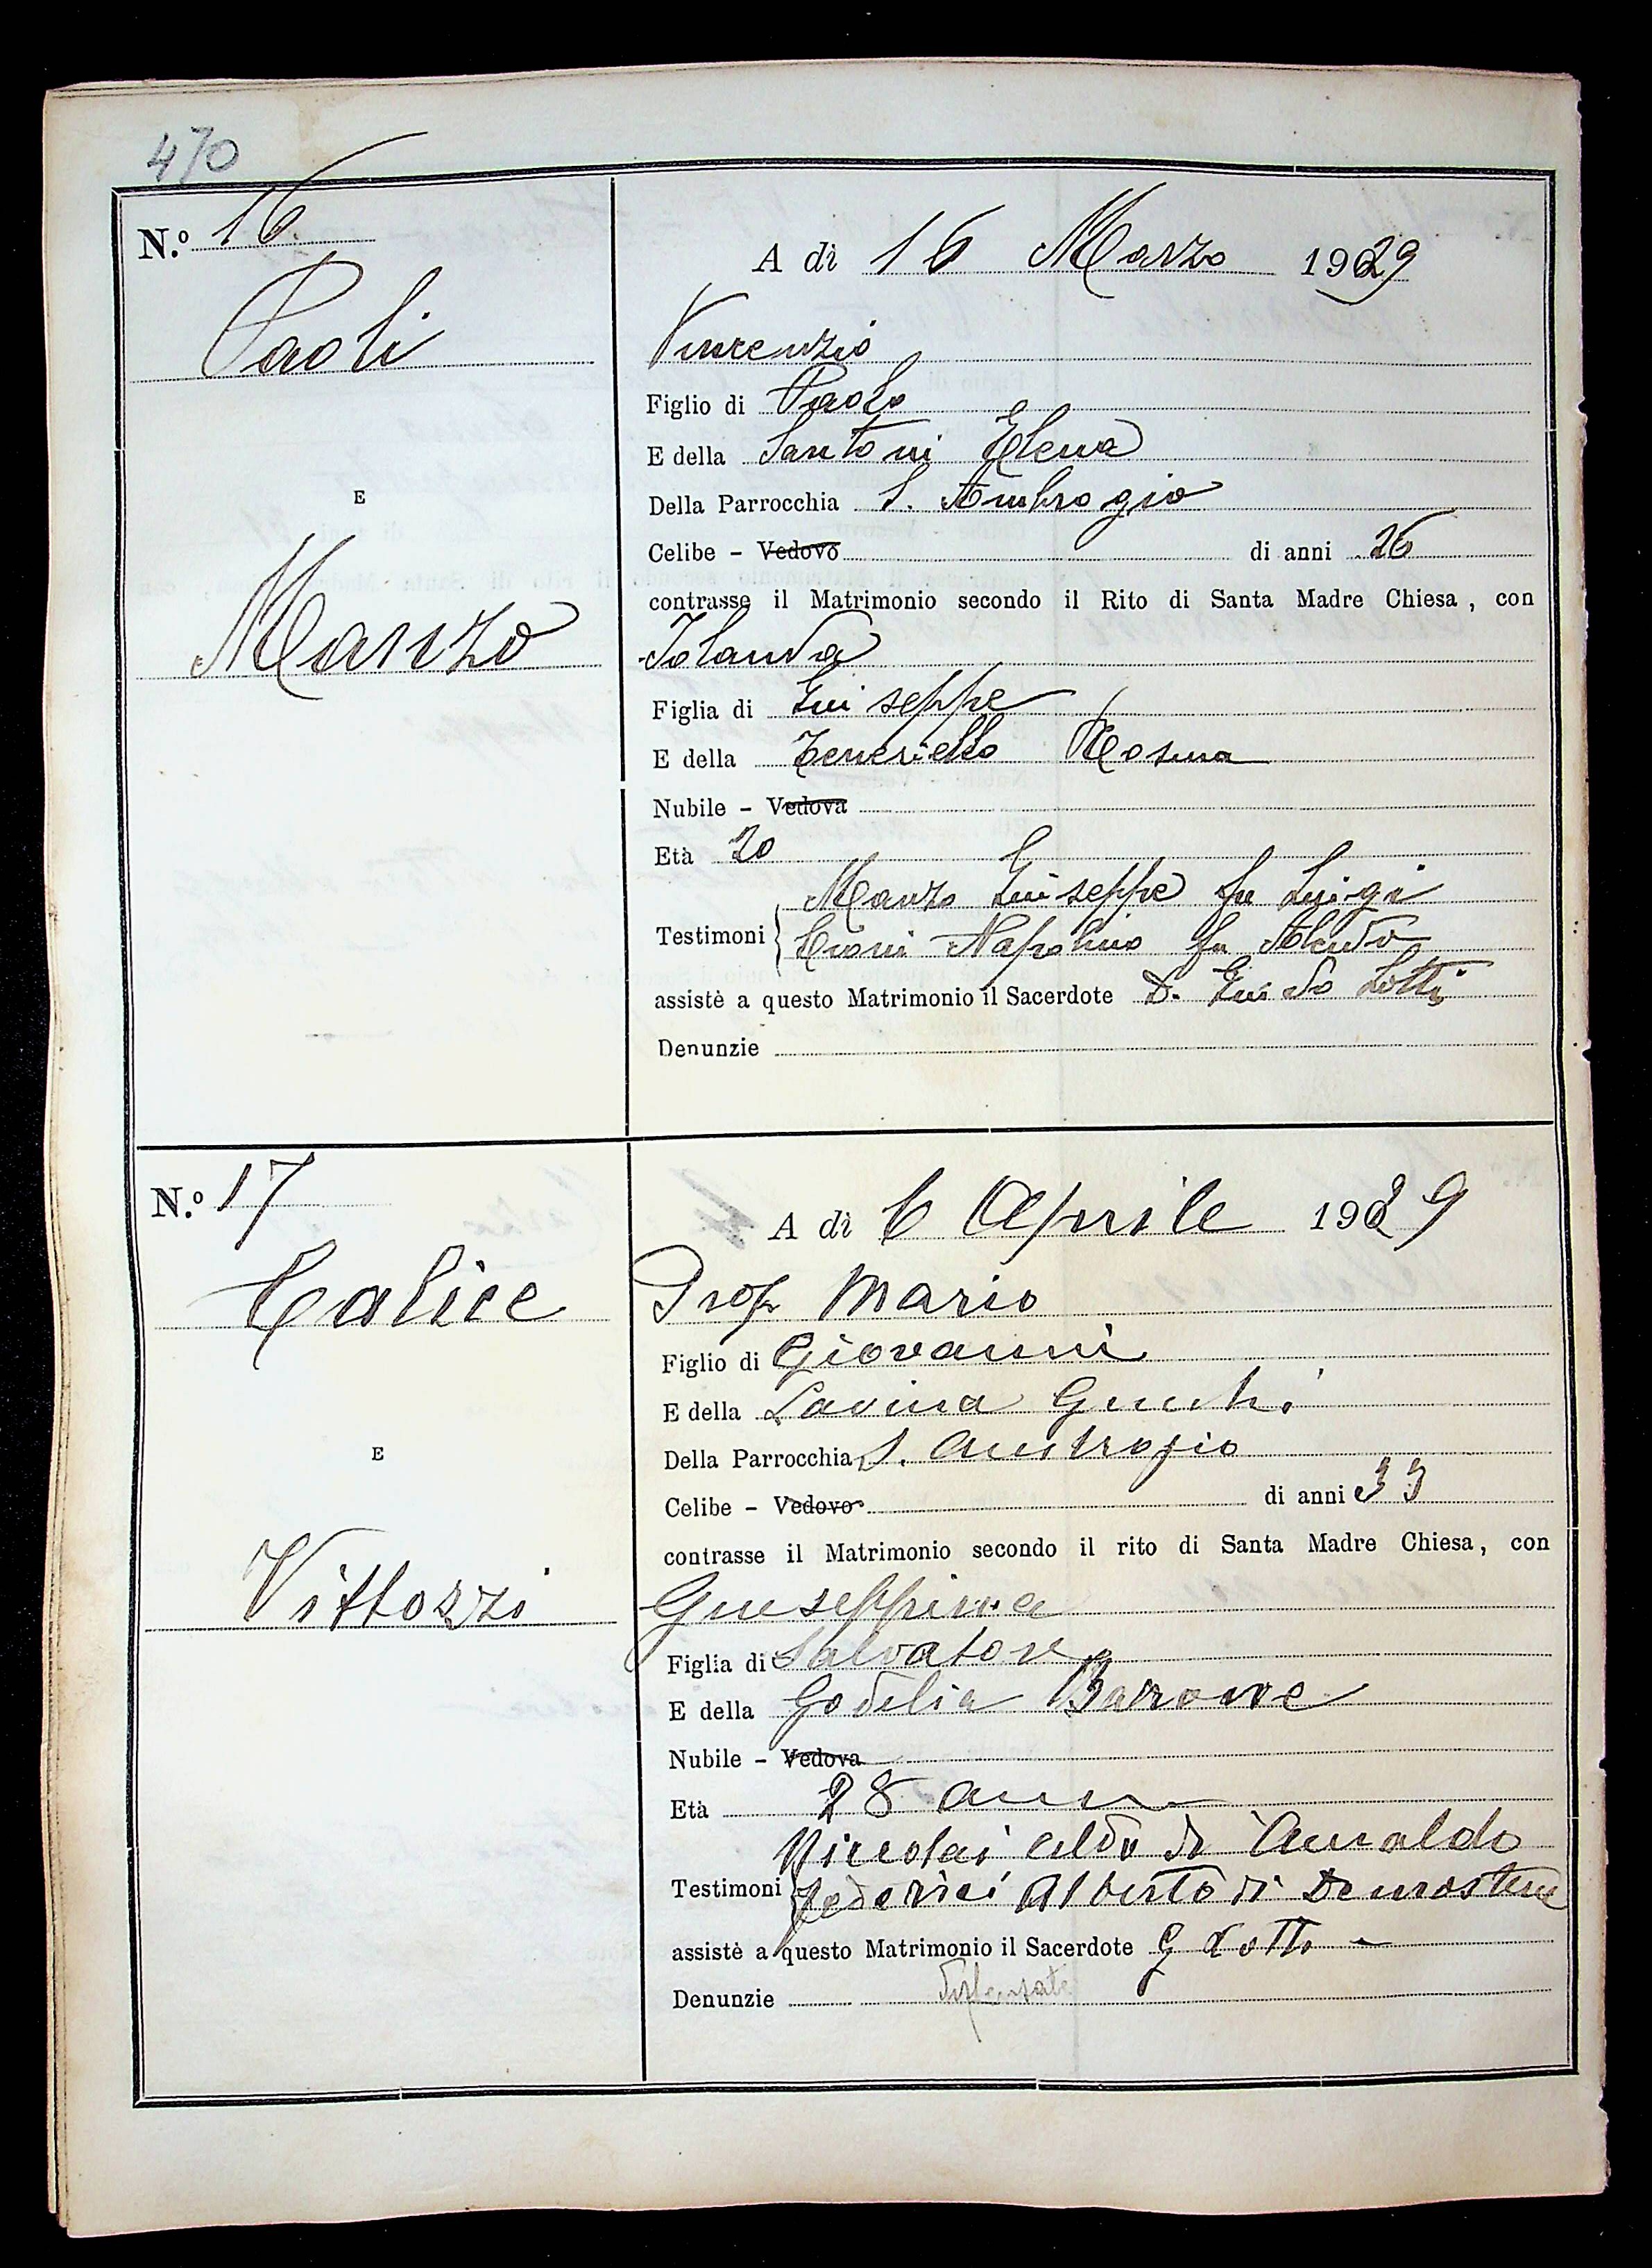 470
N.º 16
A dì 16 Marzo 1929
Paoli
Vincenzio
Figlio di Paolo
E della Santoni Elena
Della Parrocchia S. Ambrogio
E
Celibe - Vedovo di anni 26
contrasse il Matrimonio secondo il Rito di Santa Madre Chiesa, con
Manzo
Iolanda
Figlia di Giuseppe
E della Rosina
Nubile - Vedova
Età 20
Manzo Giuseppe fu Luigi
Testimoni Napoleino fu
assistè a questo Matrimonio il Sacerdote D. Guido Lotti
Denunzie
N.º 17
A dì 6 Aprile 1929
Calice
Prof. Mario
Figlio di Giovanni
E della Lavina
Della Parrocchia S. Ambrogio
E
Celibe - Vedovo di anni 33
contrasse il Matrimonio secondo il rito di Santa Madre Chiesa, con
Vittozzi
Giuseppina
Figlia di Salvatore
E della Godelia Barone
Nubile - Vedova
Età 28 anni
Niccolai Aldo di Arnaldo
Testimoni Federici Alberto di Demostene
assistè a questo Matrimonio il Sacerdote G Lotti
Denunzie Dispensate